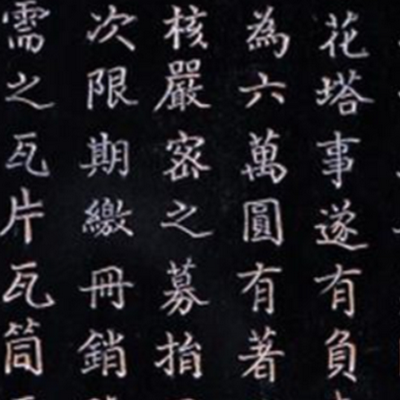 花塔事遂有負
為六萬圓有著
核嚴密之募捐
次限期繳冊銷
需之瓦片瓦筒